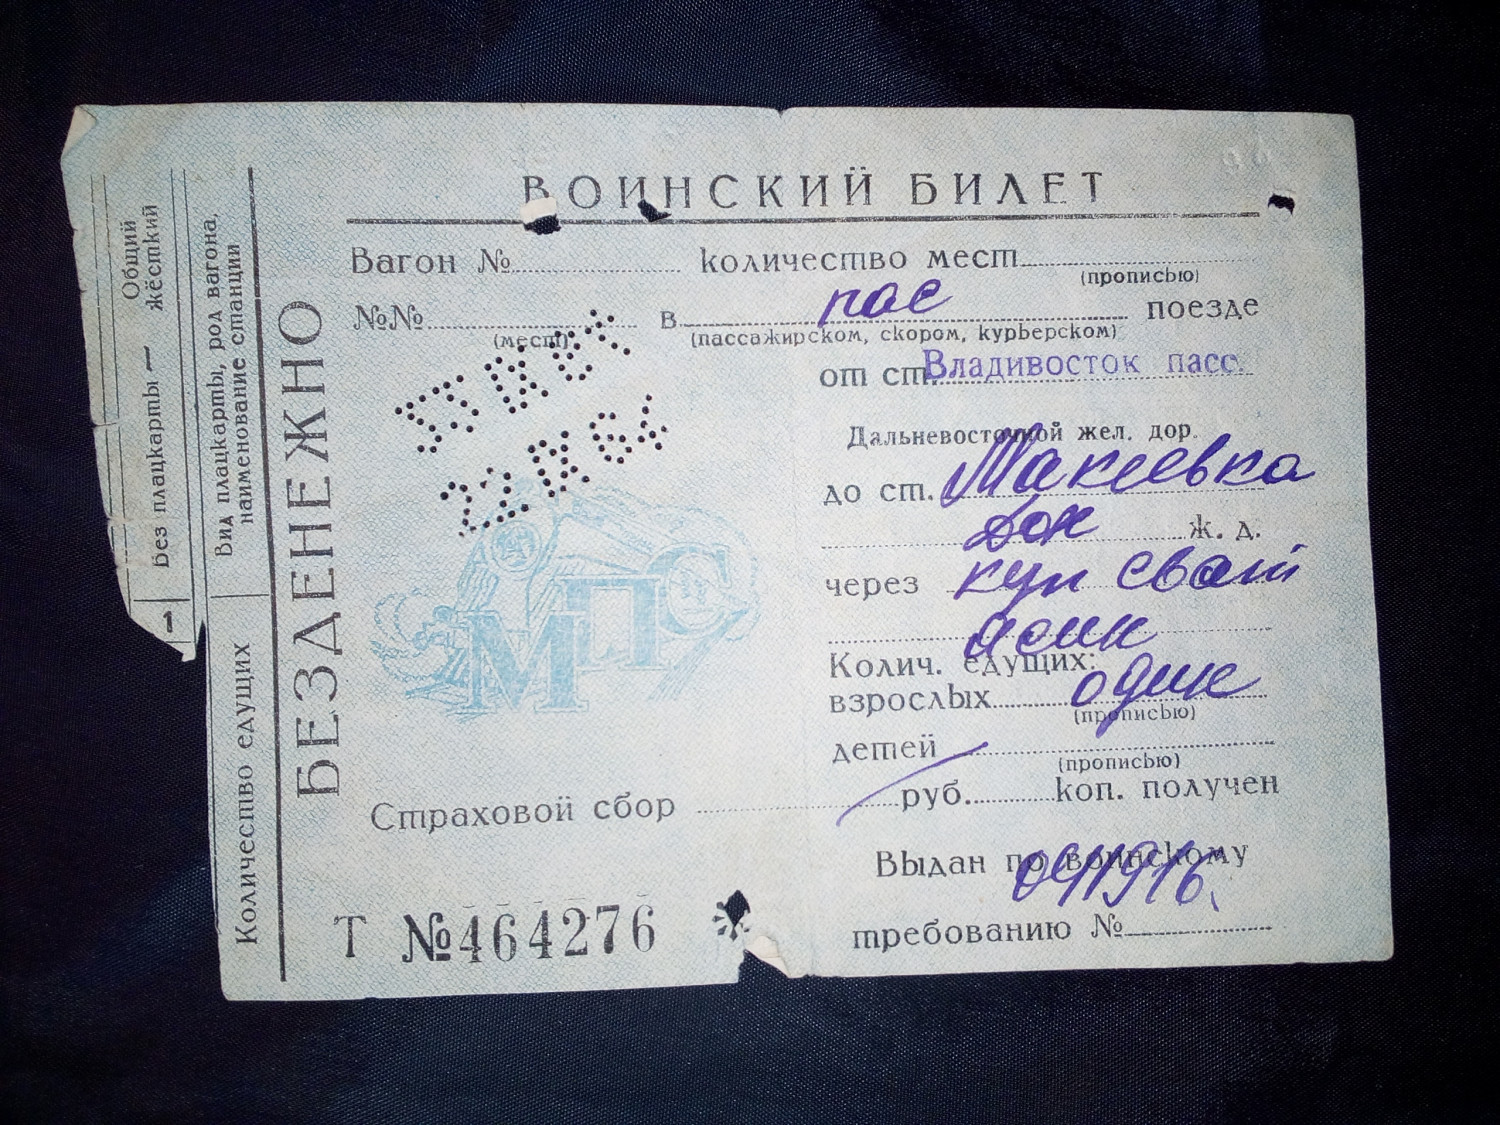 ВОИНСКИЙ БИЛЕТ
Вагон № количество мест
(прописью)
№№ в пас поезде
(мест) (пассажирском, скором, курьерском)
от ст. Владивосток пасс.
Дальневосточной жел. дор.
до ст. Макеевка
Дон ж. д.
через куп сват
Ясин
Колич. едущих:
взрослых один
(прописью)
детей
(прописью)
Страховой сбор руб. коп. получен
Выдан по воинскому
041916
требованию №
Т №464276
МПС
БЕЗДЕНЕЖНО
Вид плацкарты, род вагона,
наименование станции
Количество едущих
Общий
Без плацкарты — жёсткий
1